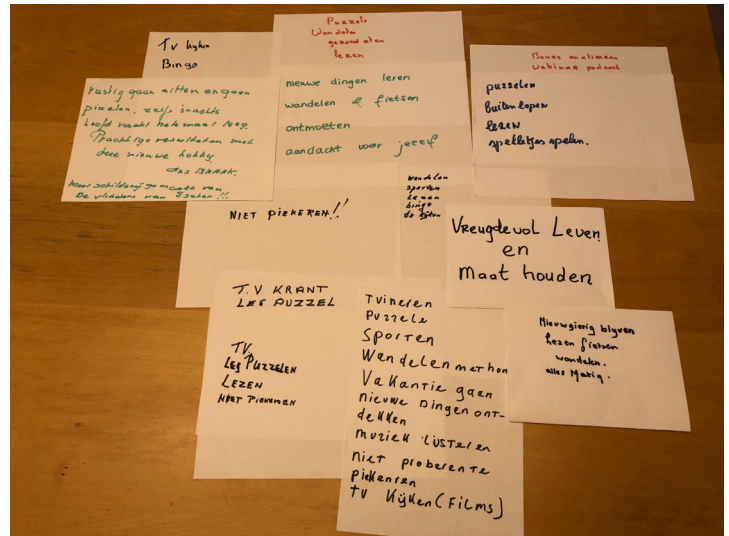 TV kijken
Bingo
Puzzels
Wandelen
gezond eten
lezen
Webinar podcast
puzzelen
buiten lopen
lezen
spelletjes spelen.
rustig gaan zitten en gaan
pixelen, zelfs snachts
hoofd raakt helemaal leeg.
Prachtige resultaten met
deze nieuwe hobby.
Mooi schilderij gemaakt van
De vlinders van
nieuwe dingen leren
wandelen & fietsen
ontmoeten
aandacht voor jezelf
wandelen
sporten
Lezen
bingo
tv kijken
NIET PIEKEREN!!
Vreugdevol Leven
en
Maat houden
T.V KRANT
LEG PUZZEL
TV.
LEG PUZZELEN
LEZEN
NIET PIEKEREN
Tuineren
Puzzele
Sporten
Wandelen met hon
Vakantie gaan
nieuwe Dingen ont-
dekken
muziek lusteren
niet proberen te
piekenren
TV Kijken (Films)
Nieuwgierig blyven
Lezen fietsen
wandelen.
alles Matig.